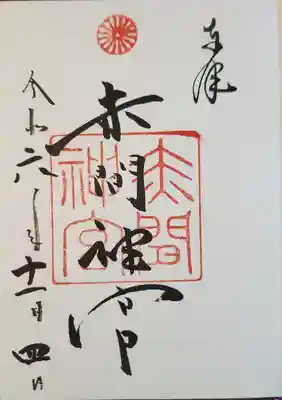 奉拝
赤間神宮
赤間
神宮
令和六年十一月四日